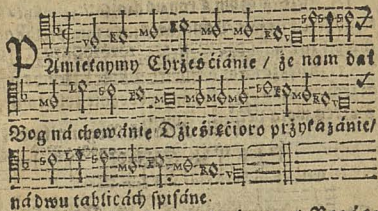 PAmietaymy Chrześćiánie / że nam dał
Bog ná chowánie Dźieśięćioro przykazánie/
ná dwu tablicách spisáne.